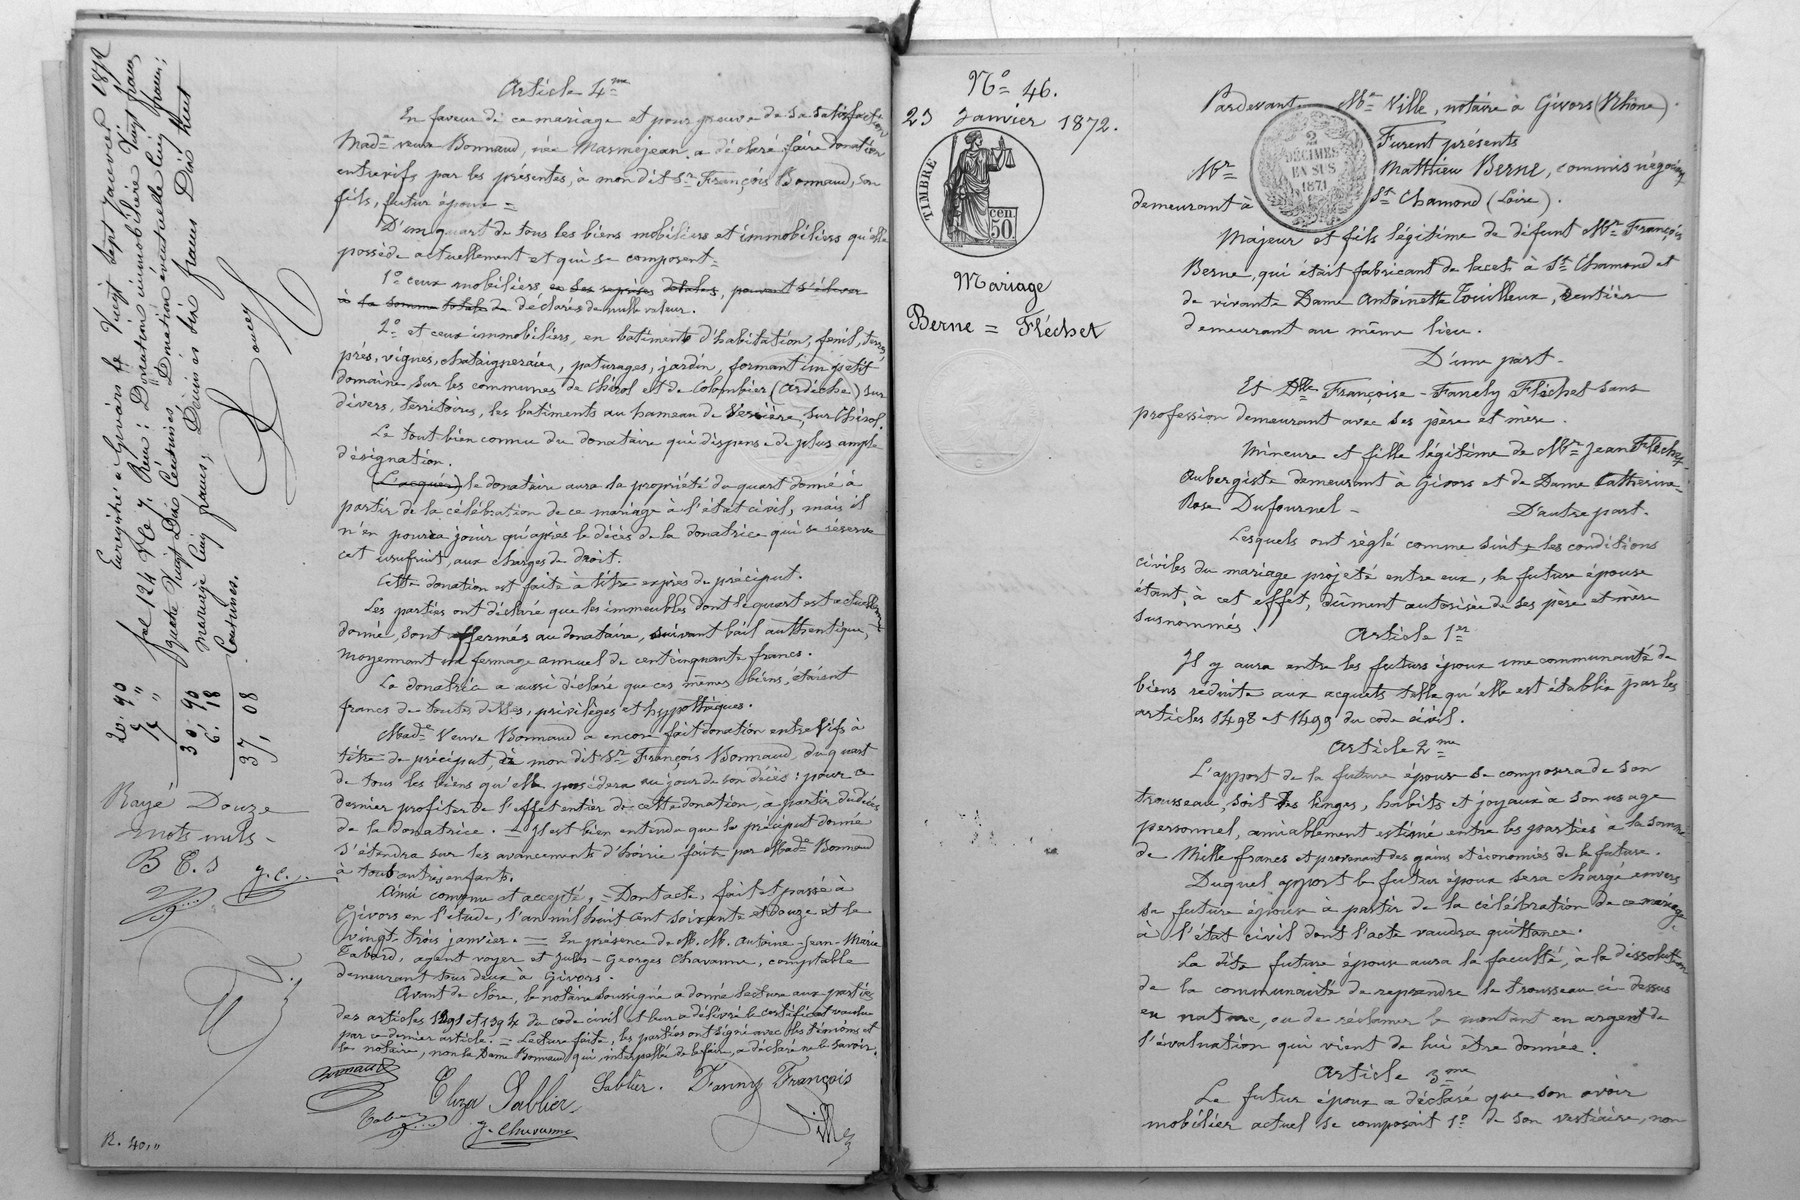 Article 4me
En faveur de ce mariage et pour preuve de sa satisfaction
Made veuve Bonnaud, née Masméjean, a déclaré faire donation
entrevifs par les présentes, à mon dit Sr François Bonnaud, son
fils, futur époux =
D'un quart de tous les biens mobiliers et immobiliers qu'elle
possède actuellement et qui se composent =
1o ceux mobiliers en ses reprises dotales, pouvant s'élever
à la somme totale de déclarés de nulle valeur.
2o et ceux immobiliers, en batiments d'habitation, fenil, terres,
prés, vignes, chataigneraies, paturages, jardin, formant un petit
domaine sur les communes de Chirol et de Colombier (Ardèche) sur
divers territoires, les batiments au hameau de Versière, sur Chirol.
Le tout bien connu du donataire qui dispense de plus ample
désignation.
(L'acquer) le donataire aura la propriété du quart donné à
partir de la célébration de ce mariage à l'état civil, mais il
n'en pourra jouir qu'après le décès de la donatrice qui se réserve
cet usufruit, aux charges de droit.
Cette donation est faite à titre exprès de préciput.
Les parties ont déclaré que les immeubles dont le quart est actuellement
donné, sont affermés au donataire, suivant bail authentique,
moyennant un fermage annuel de cent cinquante francs.
La donatrice a aussi déclaré que ces mêmes biens, étaient
francs de toutes dettes, privilèges et hypothèques.
Made Veuve Bonnaud a encore fait donation entre vifs à
titre de préciput, à mon dit Sr François Bonnaud, du quart
de tous les biens qu'elle possédera au jour de son décès: pour ce
dernier profiter de l'effet entier de cette donation, à partir du décès
de la donatrice. = Il est bien entendu que le préciput donné
s'étendra sur les avancements d'hoirie faits par Made Bonnaud
à tous autres enfants.
Ainsi convenu et accepté, = Dont acte, fait et passé à
Givors en l'étude, l'an mil huit cent soixante et douze et le
vingt-trois janvier. = En présence de M. M. Antoine-Jean-Marie
Tabard, agent voyer et Jules-Georges Chavanne, comptable
demeurant tous deux à Givors.
Avant de clore, le notaire soussigné a donné lecture aux parties
des articles 1391 et 1394 du code civil et leur a délivré le certificat voulu
par ce dernier article. = Lecture faite, les parties ont signé avec les témoins et
le notaire, non la Dame Bonnaud qui interpellée de le faire, a déclaré ne le savoir.
Bonnaud
Eliza Sablier
Sablier.
Fanny François
J. Chavanne
Ville
Enregistré à Givors le Vingt sept Janvier 1872
fol 124 Vo C 7. Reçu: Donation immobilière Vingt francs
quatre Vingt Dix Centimes Donation éventuelle Cinq francs;
mariage Cinq francs, Décimes Six francs Dix huit
Centimes.
20. 90
5 "
5 "
30. 90
6. 18
37, 08
Rayé Douze
mots nuls -
B E. S
J. C.
R. 40,"
No 46.
23 Janvier 1872.
TIMBRE
cen. 50.
Mariage
Berne = Fléchet
2
DÉCIMES
EN SUS
1871
Pardevant Me Ville, notaire à Givors (Rhône).
Furent présents
Mr Matthieu Berne, commis négociant
demeurant à St Chamond (Loire).
Majeur et fils légitime de défunt Mr François
Berne, qui était fabricant de lacets à St Chamond et
de vivante Dame Antoinette Touilleux, Rentière
demeurant au même lieu.
D'une part.
Et Dlle Françoise-Fanely Fléchet sans
profession demeurant avec ses père et mère.
Mineure et fille légitime de Mr Jean Fléchet
Aubergiste demeurant à Givors et de Dame Catherine-
Rose Dufournel - D'autre part.
Lesquels ont réglé comme suit les conditions
civiles du mariage projeté entre eux, la future épouse
étant, à cet effet, dûment autorisée de ses père et mère
susnommés.
Article 1er
Il y aura entre les futurs époux une communauté de
biens réduite aux acquets telle qu'elle est établie par les
articles 1498 et 1499 du code civil.
Article 2me
L'apport de la future épouse se composera de son
trousseau, soit des linges, habits et joyaux à son usage
personnel, amiablement estimé entre les parties à la somme
de Mille francs et provenant des gains et économies de la future.
Duquel apport le futur époux sera chargé envers
sa future épouse à partir de la célébration de ce mariage
à l'état civil dont l'acte vaudra quittance.
La dite future épouse aura la faculté, à la dissolution
de la communauté de reprendre le trousseau ci dessus
en nature, ou de réclamer le montant en argent de
l'évaluation qui vient de lui être donnée.
Article 3me
Le futur époux a déclaré que son avoir
mobilier actuel se composait 1o de son vestiaire, non